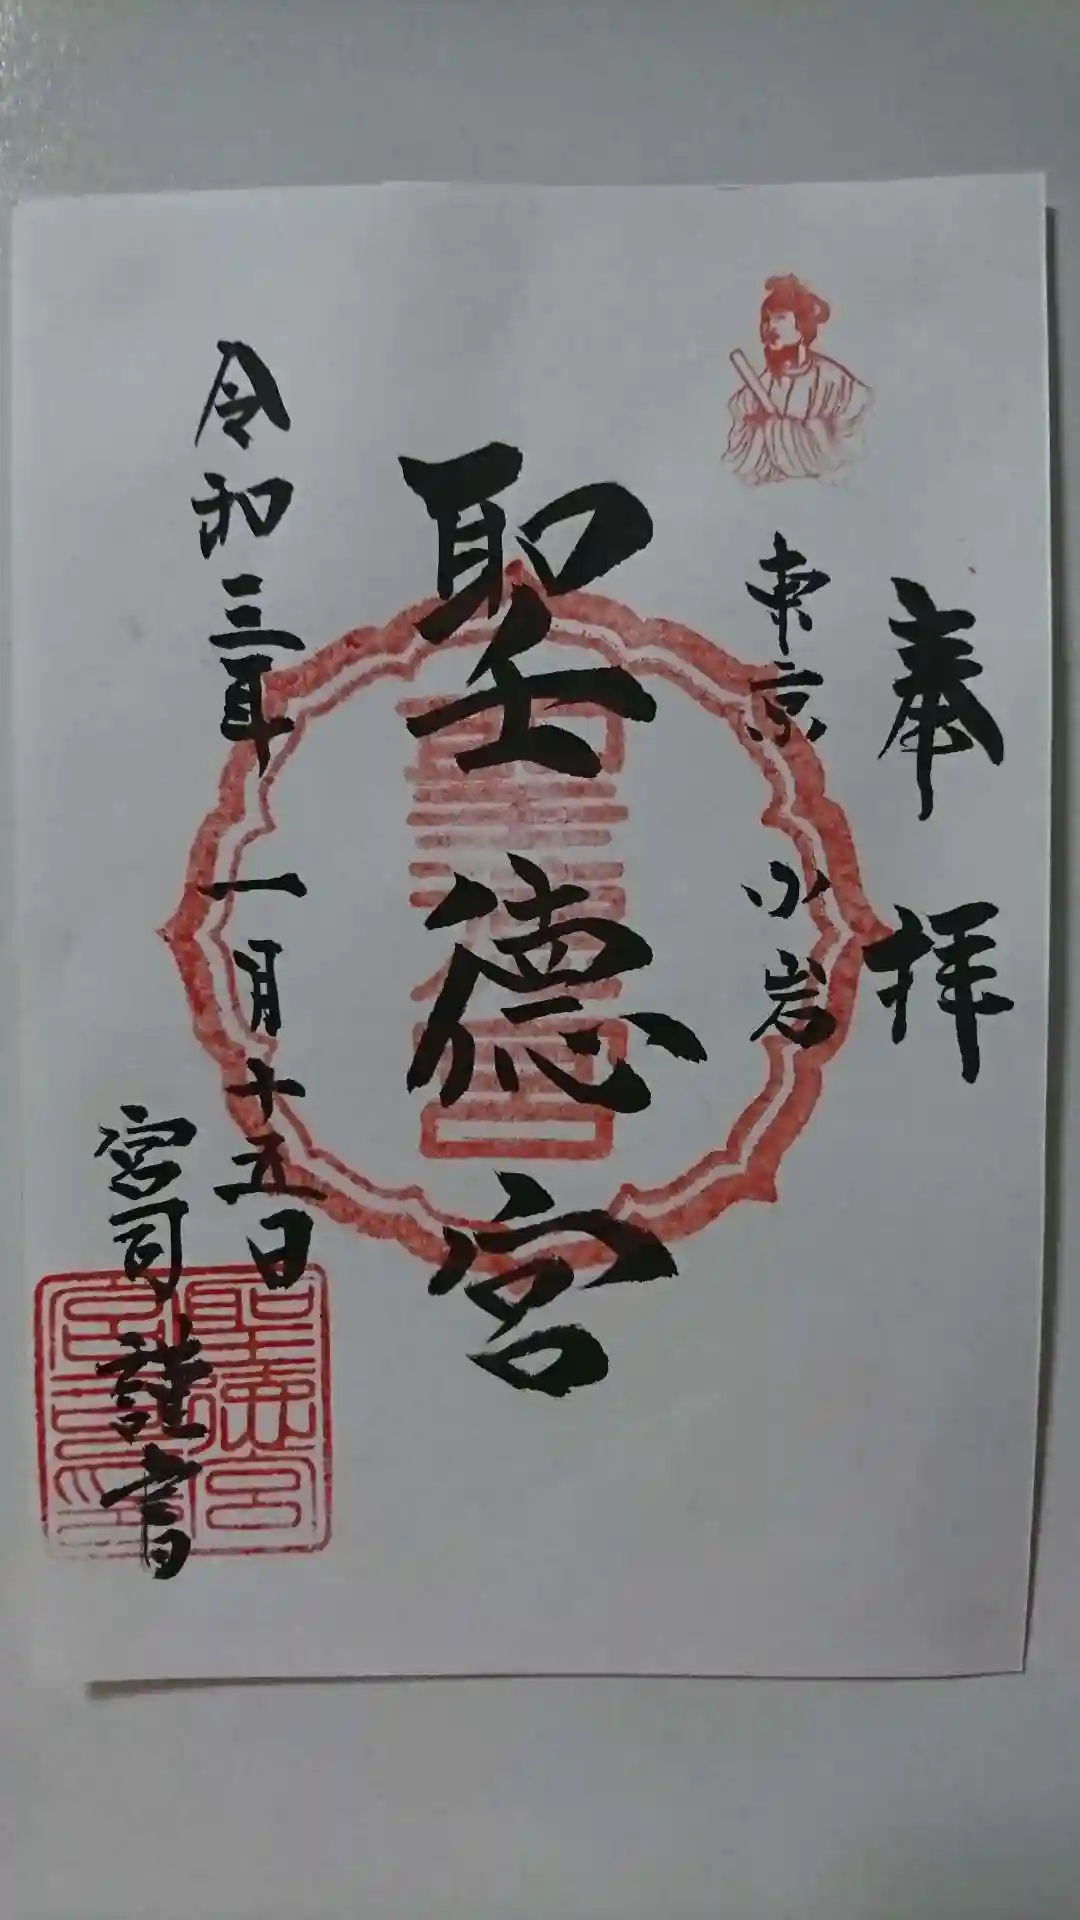 奉拝
東京 小岩
聖徳宮
令和三年 一月十五日
宮司 謹書
聖徳宮
宮司之印